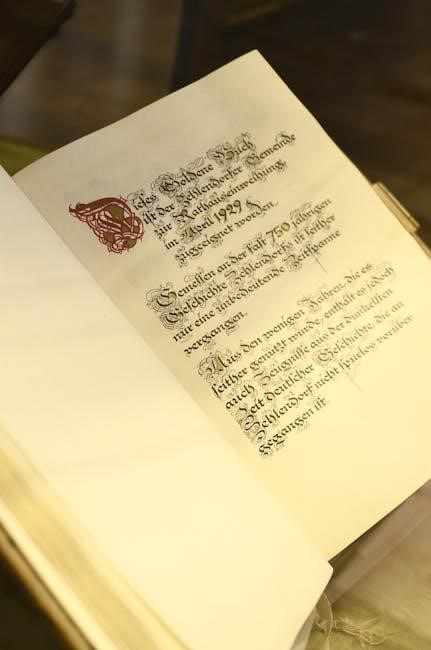 Dieses Goldene Buch
ist der Zehlendorfer Gemeinde
zur Rathauseinweihung,
im April 1929
zugeeignet worden.
Gemessen an der fast 750 jährigen
Geschichte Zehlendorfs ist seither
nur eine unbedeutende Zeitspanne
vergangen.
Aus den wenigen Jahren, die es
seither genutzt wurde, enthält es jedoch
auch Zeugnisse aus der dunkelsten
Zeit deutscher Geschichte, die an
Zehlendorf nicht spurlos vorüber
gegangen ist.